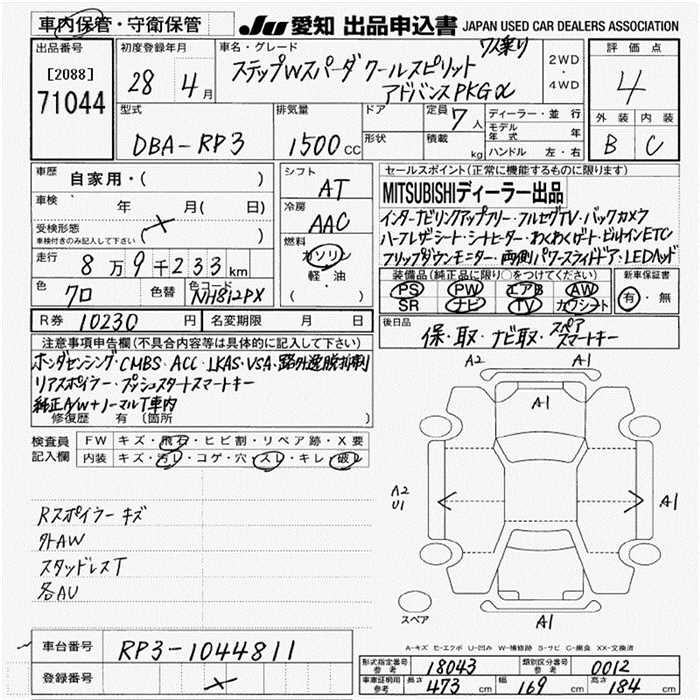 車内保管・守衛保管
JU 愛知 出品申込書 JAPAN USED CAR DEALERS ASSOCIATION
出品番号
[2088]
71044
初度登録年月
28年 4月
車名・グレード
7人乗り
ステップWスパーダ クールスピリット
アドバンスPKGα
2WD
・
4WD
評価点
4
外装 内装
B C
型式
DBA-RP3
排気量
1500cc
ドア
形状
定員 7人
積載 kg
ディーラー・並行
モデル年式 年
ハンドル 左・右
車歴
自家用・( )
車検 年 月( 日)
受検形態
車検付きのみ記入して下さい ( × )
走行 8万9千233km
色 クロ
色替
色コード NH812PX
シフト
AT
冷房
AAC
燃料
ガソリン
軽・油
( )
セールスポイント(正常に機能するものに限ります)
MITSUBISHIディーラー出品
インターナビリンクアップフリー・フルセグTV・バックカメラ
ハーフレザーシート・シートヒーター・わくわくゲート・ビルインETC
フリップダウンモニター・両側パワースライドドア・LEDヘッド
装備品(純正品に限り○をつけてください)
PS PW エアB AW
SR ナビ TV カワシート
新車保証書
有・無
R券 10230円
名変期限 月 日
後日品
保・取・ナビ取・スペアスマートキー
注意事項申告欄(不具合内容等は具体的に記入して下さい)
ホンダセンシング・CMBS・ACC・LKAS・VSA・路外逸脱抑制
リアスポイラー・プッシュスタートスマートキー
純正A/W+ノーマルT車内
修復歴 有 (箇所 )
検査員記入欄
FW キズ・飛石・ヒビ割・リペア跡・X要
内装 キズ・汚レ・コゲ・穴・スレ・キレ・破レ
Rスポイラーキズ
外AW
スタッドレスT
各AU
A2 A1
A1
A2
U1
A1
A1
スペア
A1
A-キズ E-エクボ U-凹み W-補修跡 S-サビ C-腐食 XX-交換済
車台番号 RP3-1044811
登録番号 ×
形式指定番号 参考 18043
類別区分番号 参考 0012
車庫証明用 参考 長さ 473cm 幅 169cm 高さ 184cm